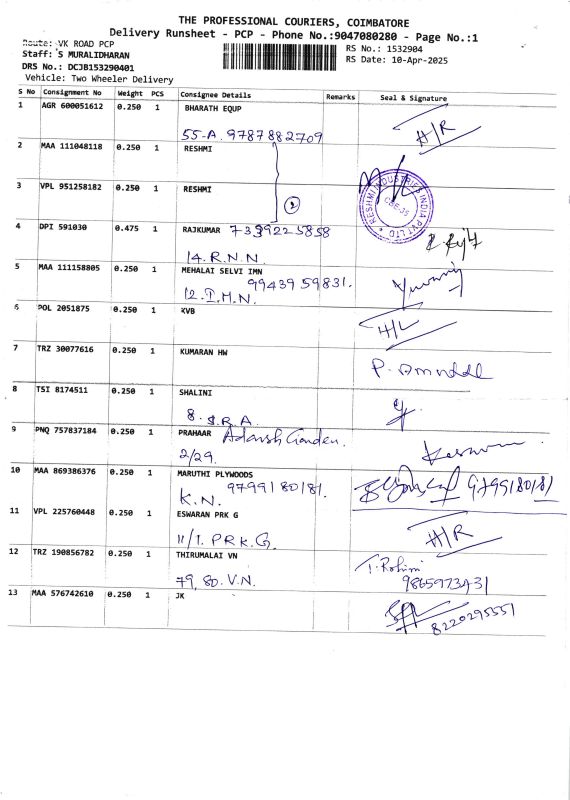 THE PROFESSIONAL COURIERS, COIMBATORE
Delivery Runsheet - PCP - Phone No.:9047080280 - Page No.:1
Route: VK ROAD PCP
Staff: S MURALIDHARAN
DRS No.: DCJB153290401
Vehicle: Two Wheeler Delivery
RS No.: 1532904
RS Date: 10-Apr-2025
S No Consignment No Weight PCS Consignee Details Remarks Seal & Signature
1 AGR 600051612 0.250 1 BHARATH EQUP
55-A. 9787882709 H/R
2 MAA 111048118 0.250 1 RESHMI
3 VPL 951258182 0.250 1 RESHMI
2
RESHMI INDUSTRIES INDIA PVT LTD
CBE-35
4 DPI 591030 0.475 1 RAJKUMAR 7339225858
14. R.N.N.
5 MAA 111158805 0.250 1 MEHALAI SELVI IMN
99439 59831.
12. I.M.N.
6 POL 2051875 0.250 1 KVB H/L
7 TRZ 30077616 0.250 1 KUMARAN HW
8 TSI 8174511 0.250 1 SHALINI
8. S.R.A.
9 PNQ 757837184 0.250 1 PRAHAAR Adarsh Garden.
2/29.
10 MAA 869386376 0.250 1 MARUTHI PLYWOODS
K.N. 9799180181. 9799180181
11 VPL 225760448 0.250 1 ESWARAN PRK G
11/1. PRK.G. H/R
12 TRZ 190856782 0.250 1 THIRUMALAI VN T. Rohini
79, 80. V.N. 9865973431
13 MAA 576742610 0.250 1 JK
8220295551